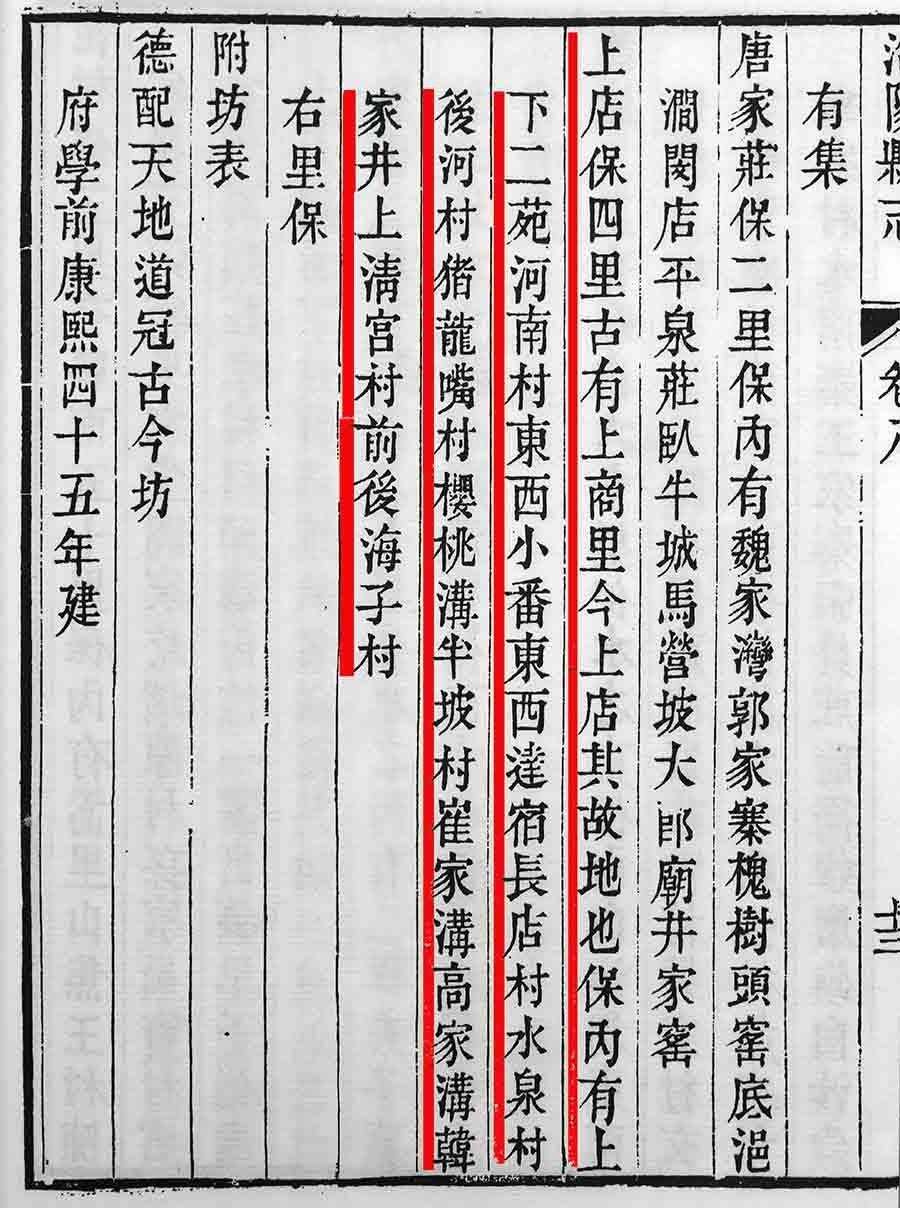 洛陽縣志
卷八
有集
唐家莊保二里保內有魏家灣郭家寨槐樹頭窑底浥
澗閔店平泉莊臥牛城馬營坡大郎廟井家窑
上店保四里古有上商里今上店其故地也保內有上
下二苑河南村東西小番東西達宿長店村水泉村
後河村猪龍嘴村櫻桃溝半坡村崔家溝高家溝韓
家井上淸宮村前後海子村
右里保
附坊表
德配天地道冠古今坊
府學前康熙四十五年建